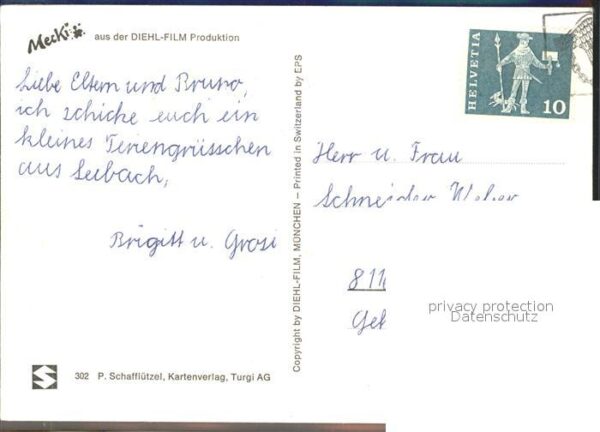 Mecki aus der DIEHL-FILM Produktion
Liebe Eltern und Bruno,
ich schicke euch ein
kleines Feriengrüsschen
aus Seebach,
Brigitt u. Grosi
Copyright by DIEHL-FILM, MÜNCHEN – Printed in Switzerland by EPS
HELVETIA
10
Herr u. Frau
Schneider
811
privacy protection
Datenschutz
302 P. Schafflützel, Kartenverlag, Turgi AG